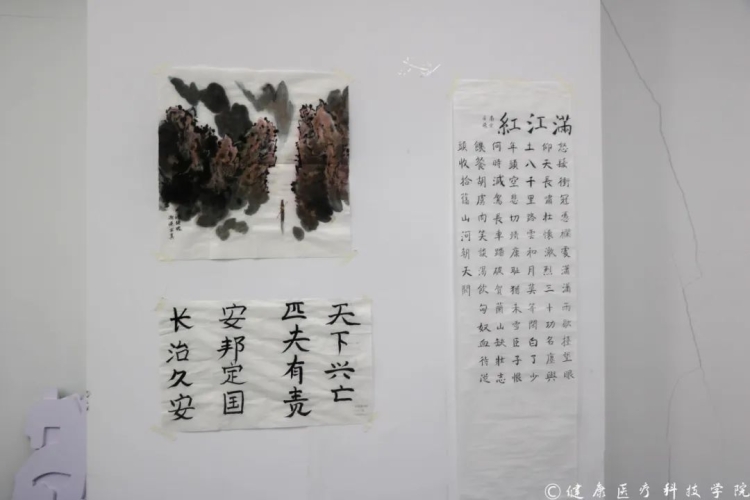 天下兴亡
匹夫有责
安邦定国
长治久安
滿江紅
怒髮衝冠憑欄處瀟瀟雨歇抬望眼
仰天長嘯壯懷激烈三十功名塵與
土八千里路雲和月莫等閒白了少
年頭空悲切靖康恥猶未雪臣子恨
何時滅駕長車踏破賀蘭山缺壯志
饑餐胡虜肉笑談渴飲匈奴血待從
頭收拾舊山河朝天闕
©健康医疗科技学院